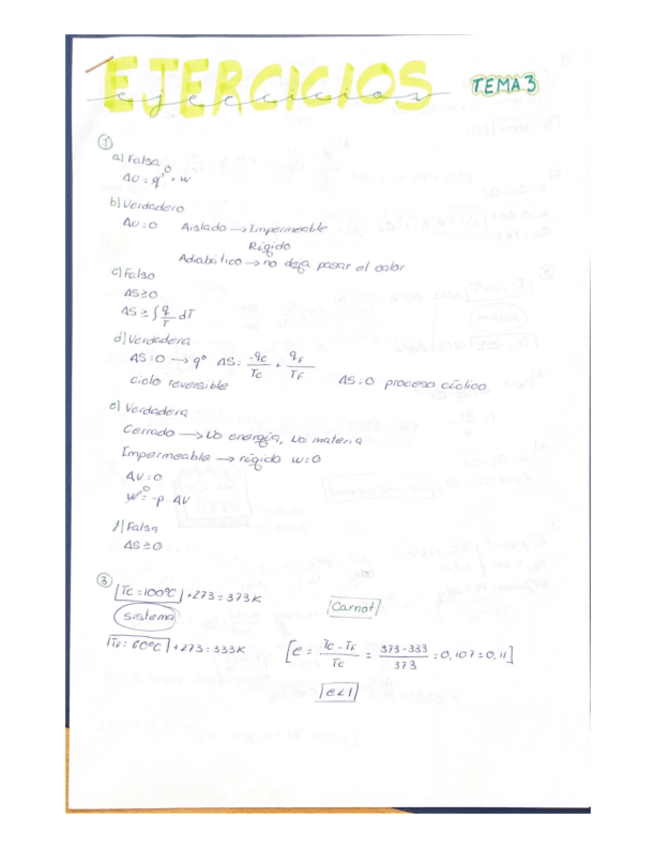 EJERCICIOS
ejercicios
TEMA 3
①
a) Falsa
ΔU = q⁰ + w
b) Verdadero
ΔU = 0 Aislado → Impermeable
Rígido
Adiabático → no deja pasar el calor
c) Falso
ΔS≥0
ΔS ≥ ∫ q/T dT
d) Verdadera
ΔS = 0 → q⁰ ΔS = -qc/Tc + qF/TF
ciclo reversible ΔS = 0 proceso cíclico
e) Verdadera
Cerrado → energía, materia
Impermeable → rígido w = 0
ΔV = 0
w⁰ = -p ΔV
f) Falsa
ΔS ≥ 0
③
Tc = 100ºC + 273 = 373K
Carnot
sistema
TF = 60ºC + 273 = 333K
[e = Tc - TF / Tc = 373 - 333 / 373 = 0,107 = 0,11]
e < 1